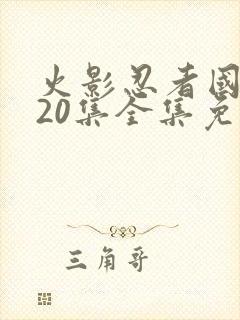 火影忍者國
20集全集免
三角哥